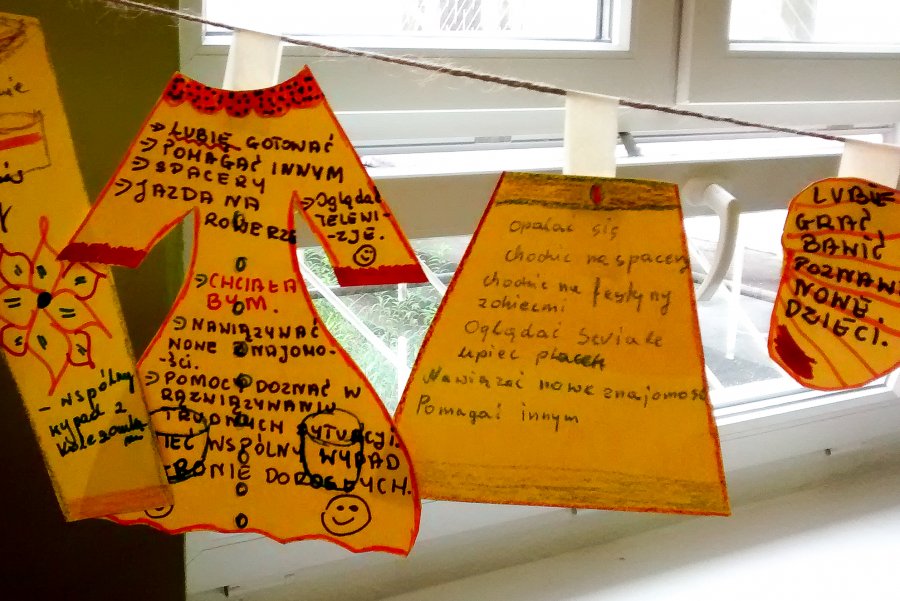 - WSPÓLNY
WYPAD Z
→ LUBIĘ GOTOWAĆ
→ POMAGAĆ INNYM
→ SPACERY
→ JAZDA NA
ROWERZE
→ Oglądać
TELENI-
ZJE.
→ CHCIAŁA
BYM.
→ NAWIĄZYWAĆ
NOWE ZNAJOMO-
ŚCI.
→ POMOC DOZNAĆ W
RAZWIĄZYWANIU
TRUDNYCH SYTUACJI.
WSPÓLNY WYPAD
GRONIE DOROSŁYCH.
Opalać się
chodzić na spacery
chodzić na festyny
z dziećmi
Oglądać Seriale
upiec placek
Nawiązać nowe znajomości
Pomagać innym
LUBIĘ
GRAĆ,
BAWIĆ
POZNAWAĆ
NOWE
DZIECI.